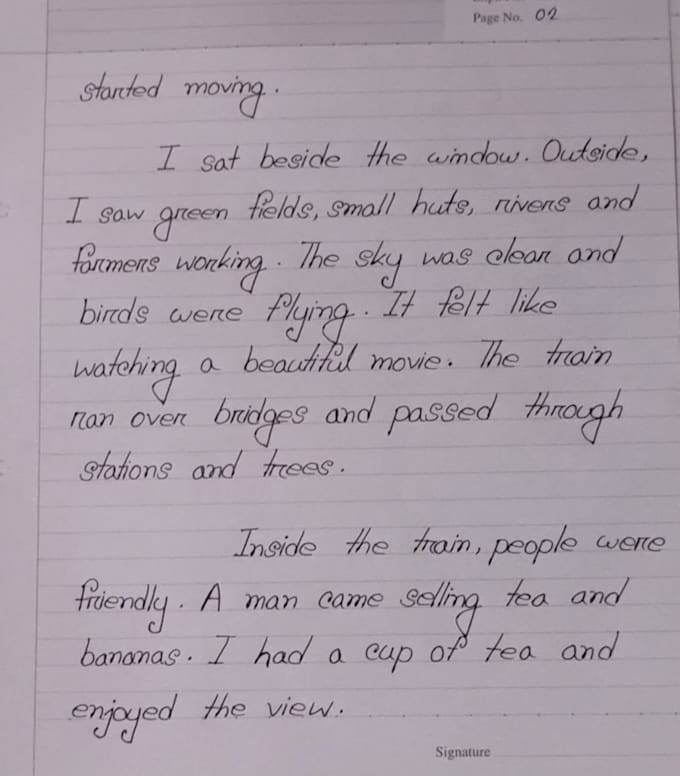 Page No. 02
started moving.
I sat beside the window. Outside,
I saw green fields, small huts, rivers and
farmers working. The sky was clear and
birds were flying. It felt like
watching a beautiful movie. The train
ran over bridges and passed through
stations and trees.
Inside the train, people were
friendly. A man came selling tea and
bananas. I had a cup of tea and
enjoyed the view.
Signature